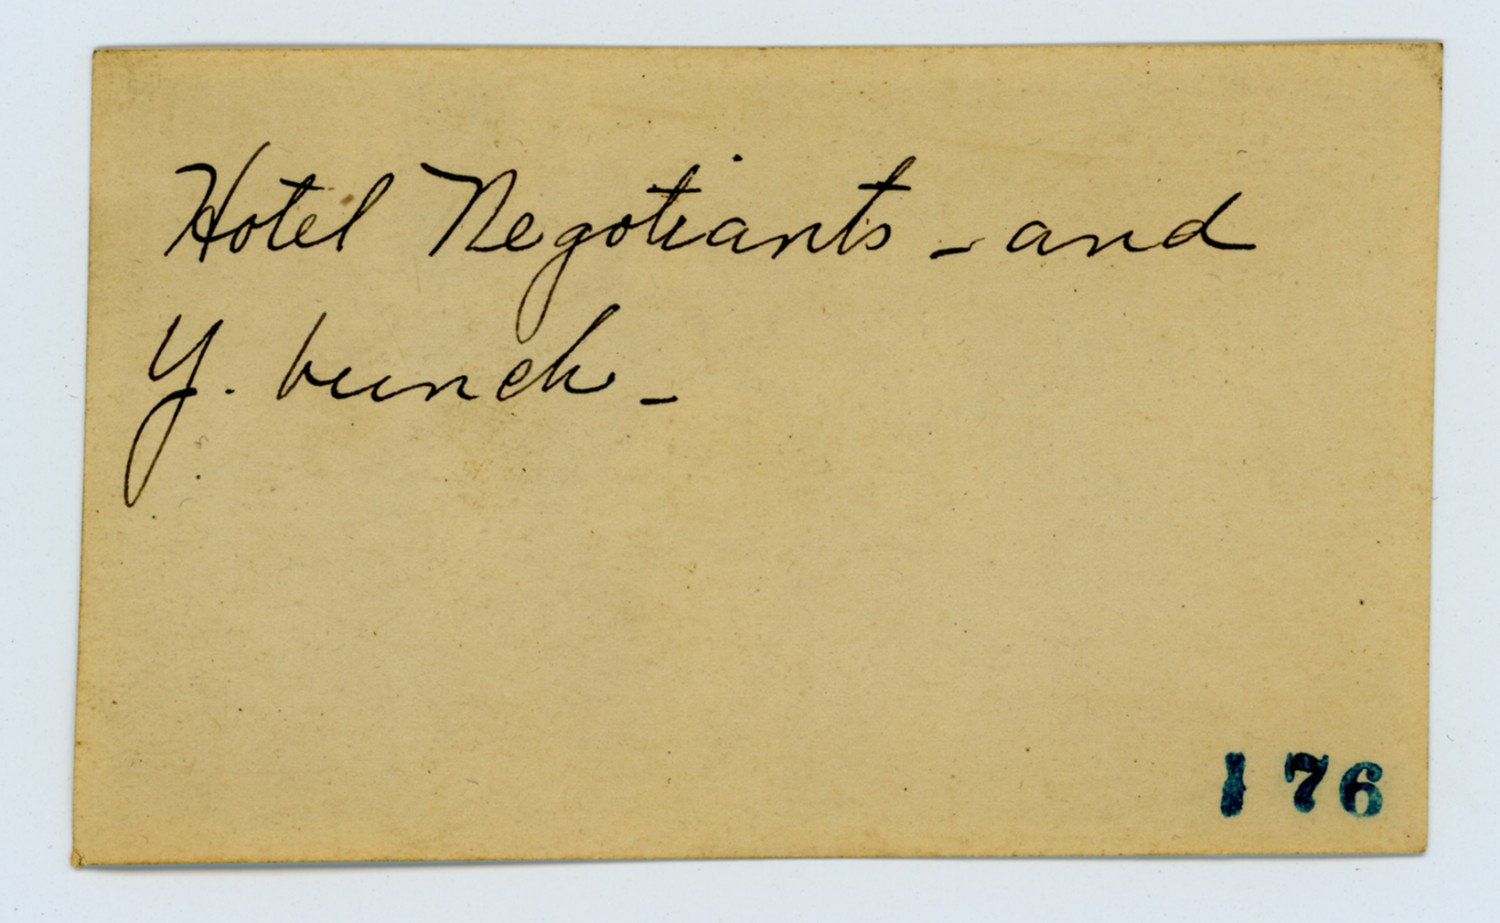 Hotel Negotiants - and
Y. bunch -
176